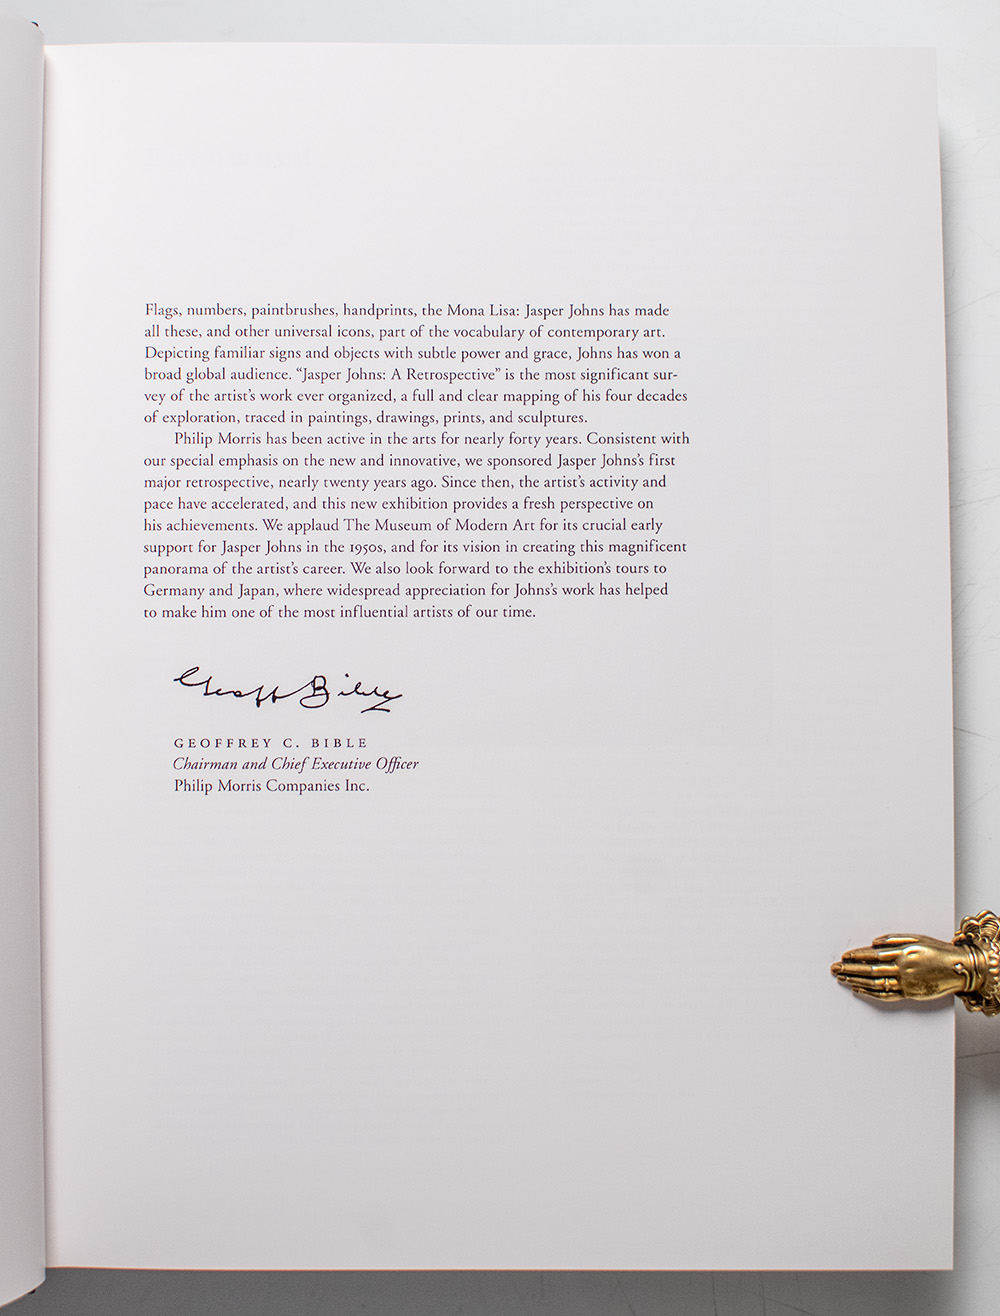 Flags, numbers, paintbrushes, handprints, the Mona Lisa: Jasper Johns has made
all these, and other universal icons, part of the vocabulary of contemporary art.
Depicting familiar signs and objects with subtle power and grace, Johns has won a
broad global audience. “Jasper Johns: A Retrospective” is the most significant sur-
vey of the artist’s work ever organized, a full and clear mapping of his four decades
of exploration, traced in paintings, drawings, prints, and sculptures.
Philip Morris has been active in the arts for nearly forty years. Consistent with
our special emphasis on the new and innovative, we sponsored Jasper Johns’s first
major retrospective, nearly twenty years ago. Since then, the artist’s activity and
pace have accelerated, and this new exhibition provides a fresh perspective on
his achievements. We applaud The Museum of Modern Art for its crucial early
support for Jasper Johns in the 1950s, and for its vision in creating this magnificent
panorama of the artist’s career. We also look forward to the exhibition’s tours to
Germany and Japan, where widespread appreciation for Johns’s work has helped
to make him one of the most influential artists of our time.
Geoff Bible
GEOFFREY C. BIBLE
Chairman and Chief Executive Officer
Philip Morris Companies Inc.